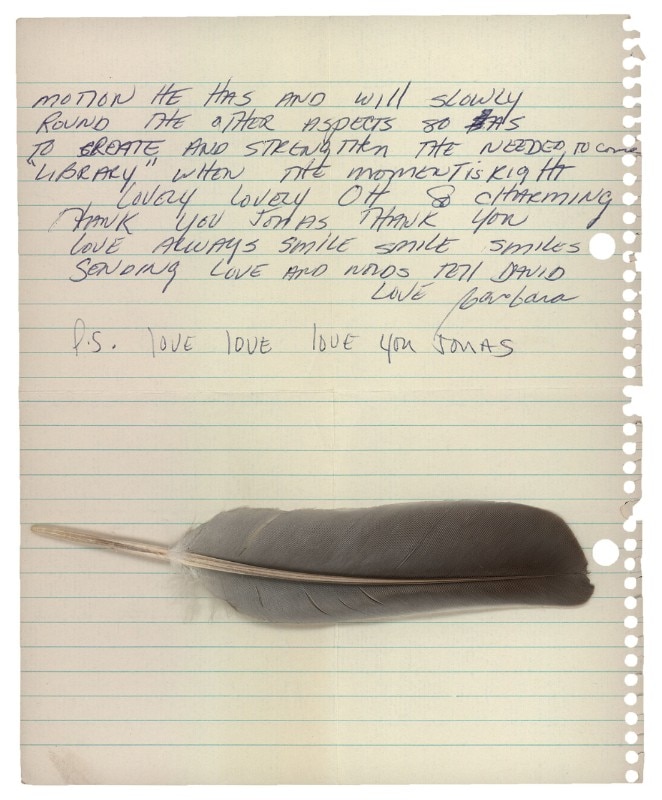 MOTION HE HAS AND WILL SLOWLY
ROUND THE OTHER ASPECTS SO AS
TO CREATE AND STRENGTHEN THE NEEDED TO COME
"LIBRARY" WHEN THE MOMENT IS RIGHT
LOVELY LOVELY OH SO CHARMING
THANK YOU JONAS THANK YOU
LOVE ALWAYS SMILE SMILE SMILES
SENDING LOVE AND NODS TELL DAVID
LOVE Barbara
P.S. love love love you JONAS